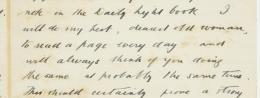 on the Daily Light book I
will do my best, dearest old woman,
to read a page every day and
will always think of you doing
the same at probably the same time.
This should certainly prove a strong